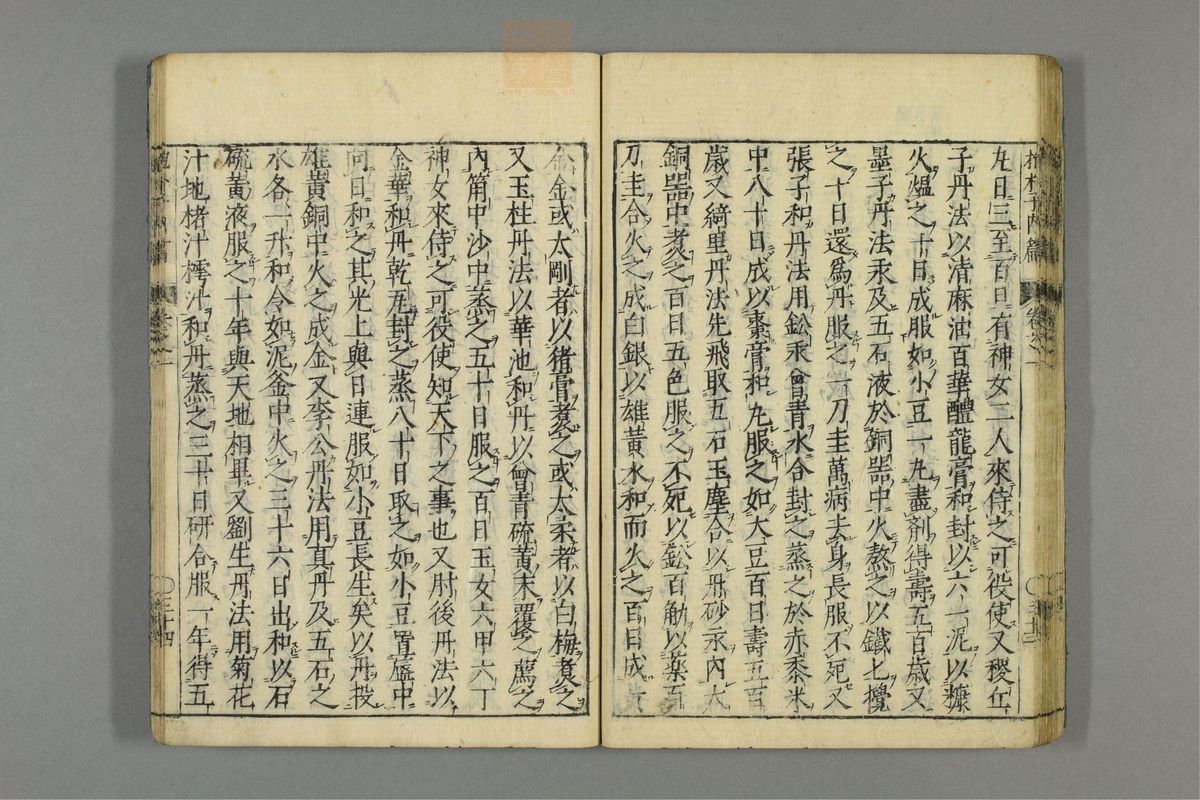 丸日三至百日有神女二人來侍之可役使又稷丘
子丹法以清麻油百華醴龍膏和封以六一泥以糠
火熅之十日成服如小豆一丸盡劑得壽五百歲又
墨子丹法汞及五石液於銅噐中火熬之以鐵匕攪
之十日還爲丹服之一刀圭萬病去身長服不死又
張子和丹法用鈆汞曾青水合封之蒸之於赤黍米
中八十日成以棗膏和丸服之如大豆百日壽五百
歲又綺里丹法先飛取五石玉塵合以丹砂汞內大
銅噐中煮之百日五色服之不死以鈆百觔以藥百
刀圭合火之成白銀以雄黃水和而火之百日成黃
金金或太剛者以猪膏煮之或太柔者以白梅煮之
又玉柱丹法以華池和丹以曾青硫黃末覆之薦之
內筩中沙中蒸之五十日服之百日玉女六甲六丁
神女來侍之可役使知天下之事也又肘後丹法以
金華和丹乾瓦封之蒸八十日取之如小豆置盤中
向日和之其光上與日連服如小豆長生矣以丹投
雄黃銅中火之成金又李公丹法用真丹及五石之
水各一升和令如泥釜中火之三十六日出和以石
硫黃液服之十年與天地相畢又劉生丹法用菊花
汁地楮汁樗汁和丹蒸之三十日研合服一年得五